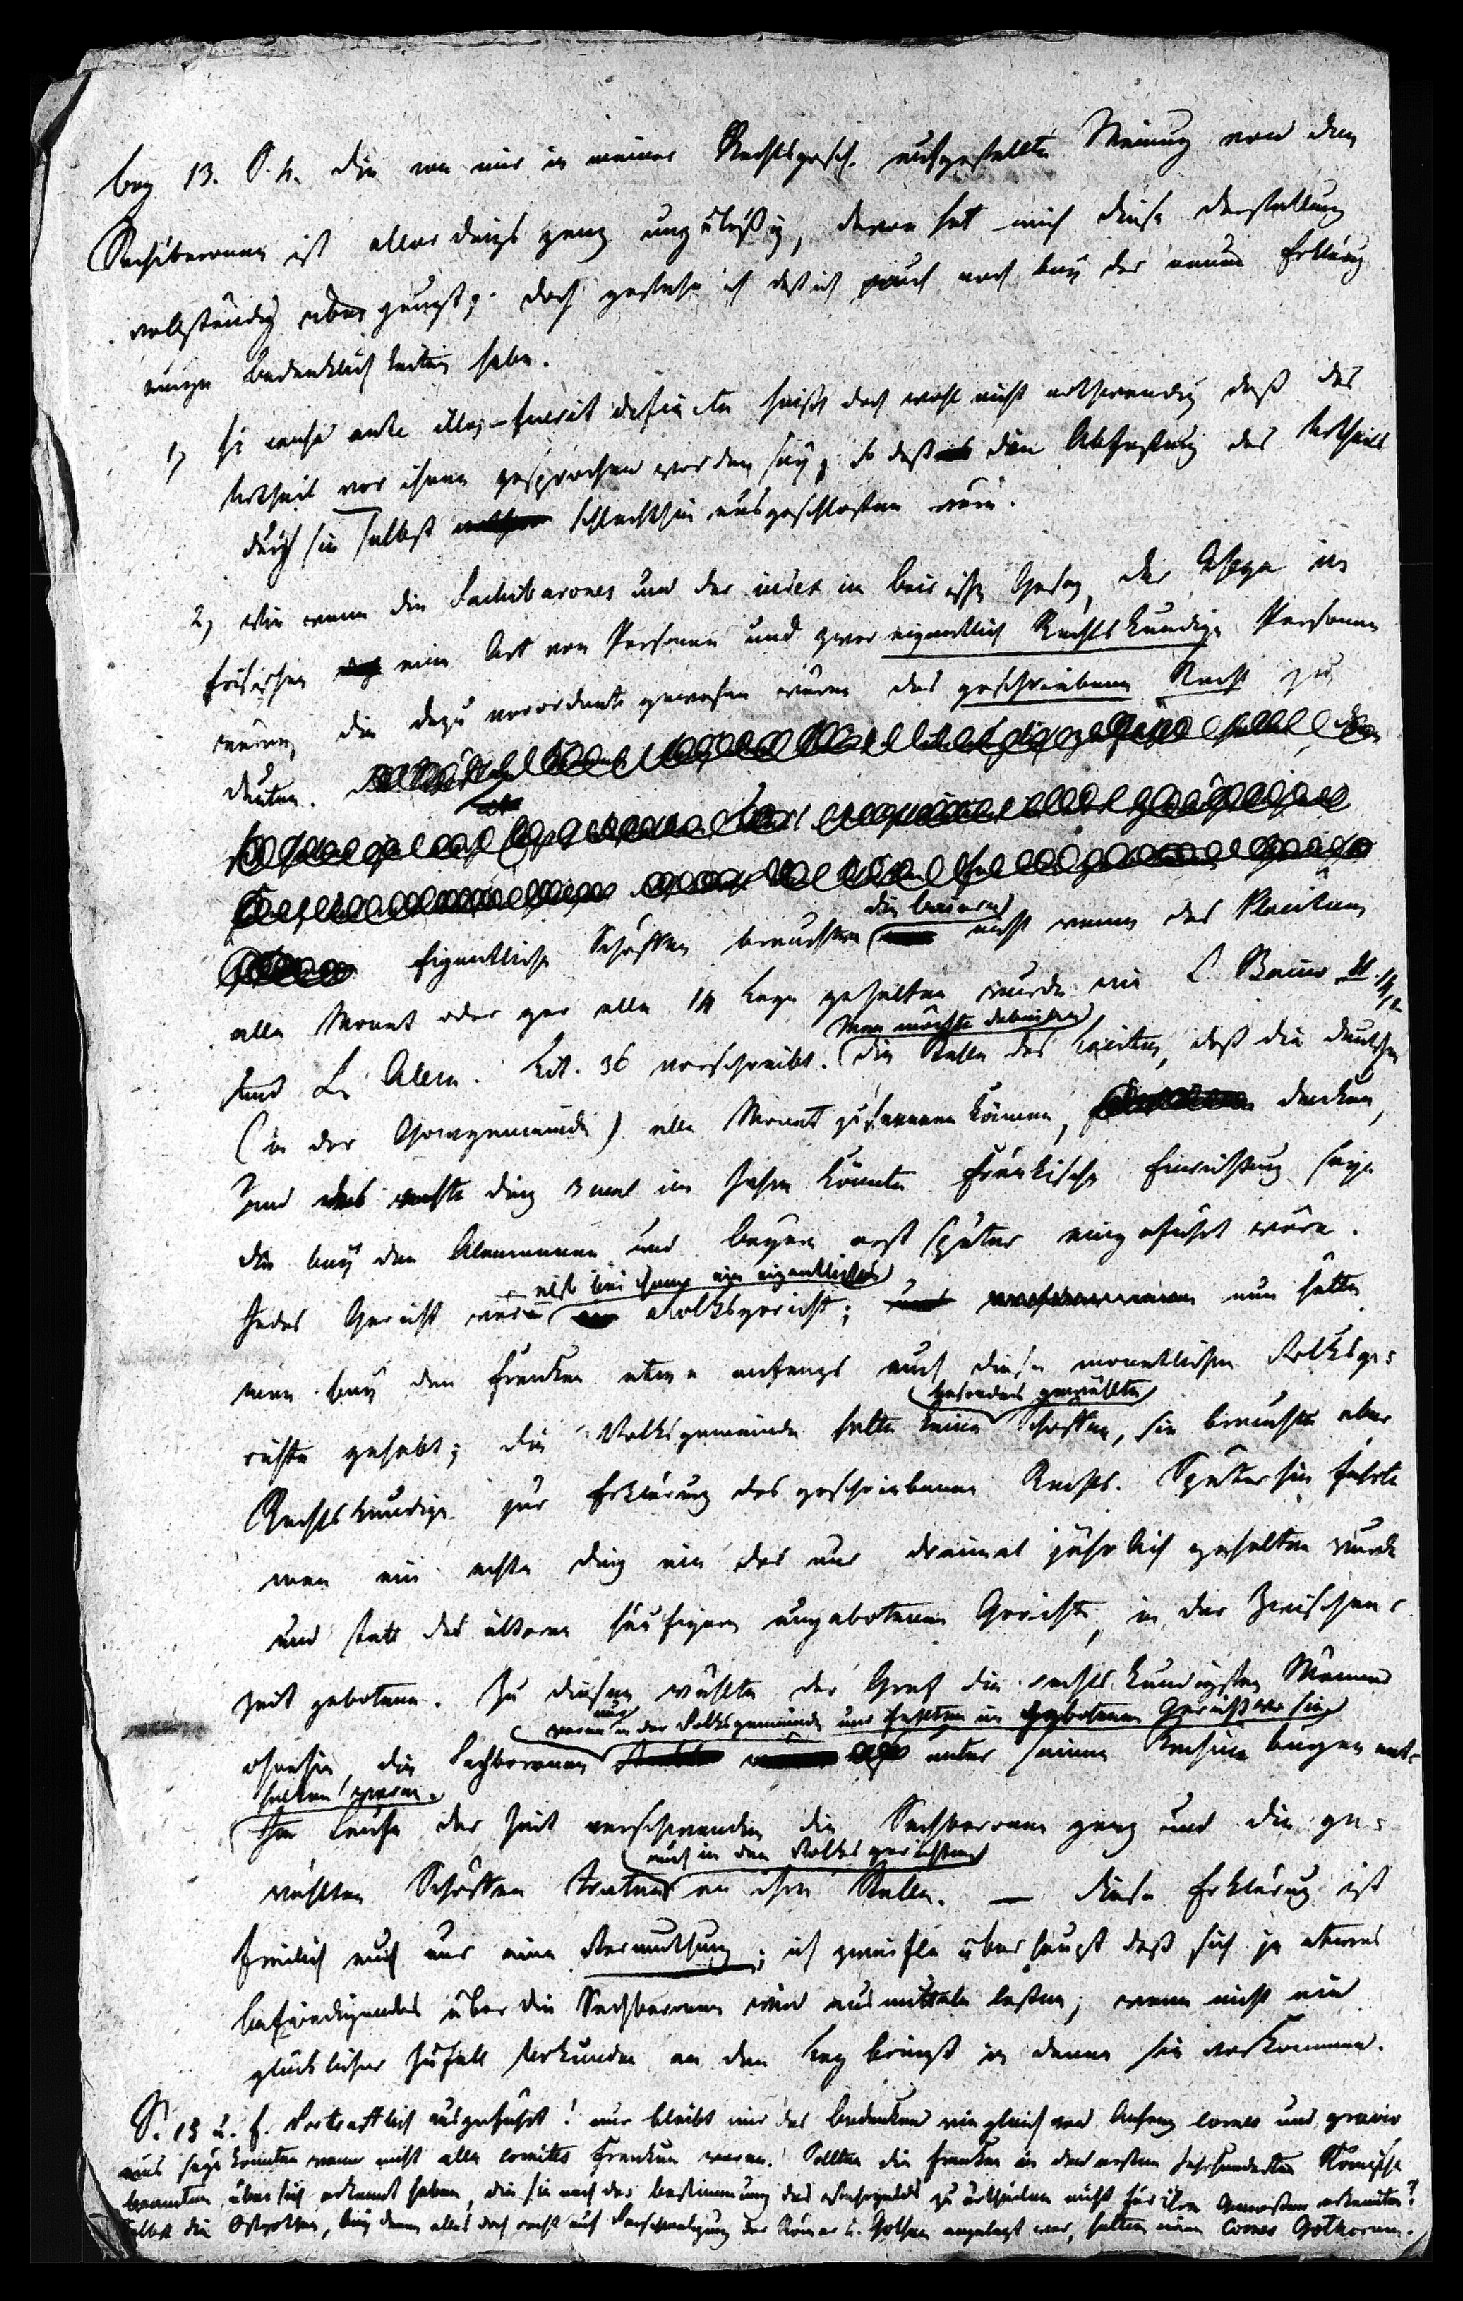 bey 13. S. 4. die von mir in meiner Rechtsgesch. aufgestellte Meinung von den
Sachibaronen ist allerdings ganz unzuläßig, davon hat mich diese Darstellung
vollständig überzeugt; doch gestehe ich daß ich auch noch bey der neuen Erklärung
einige Bedenklichkeiten habe.
1) si causa ante illos fuerit definita heißt doch wohl nicht nothwendig daß das
Urtheil vor ihnen gesprochen worden sey, so daß die Abfaßung des Urtheils
durch sie selbst schlechthin ausgeschloßen wäre.
2) Wie wenn die Sachibarones und der iudex im bairischen Gesez, der Asega im
frisischen eine Art von Personen und zwar eigentlich Rechtskundige Personen
wären, die dazu verordnet gewesen wären das geschriebene Recht zu
deuten.
Eigentliche Schöffen brauchten die baiern nicht wenn das Placitum
alle Monat oder gar alle 14 Tage gehalten wurde wie L. Baiuv. II.
und L. Alem. tit. 36 vorschreibt. Man möchte dabei an die Stelle des Tacitus, daß die deutschen
(in der Gaugemeinde) alle Monat zusammen kämen, denken,
und das echte ding 3 mal im Jahre könnte fränkische Einrichtung seyn
die bey den Alemannen und Bayern erst später eingeführt wäre.
Jedes Gericht wäre also bei ihnen ein eigentliches Volksgericht; nun hätte
man bey den Franken etwa anfangs auch diese monatlichen Volksge=
richte gehabt; die Volksgemeinde hatte keine besonders gewählten Schöffen, sie brauchte aber
Rechtskundige zur Erklärung des geschriebenen Rechts. Späterhin führte
man ein echte ding ein das nur dreimal jährlich gehalten wurde
und statt der ältern häufigern ungebotenen Gerichte, in der Zwischen=
zeit gebotene. Zu diesen wählte der Graf die rechtskundigsten Männer
ohnehin, die Sachbaronen waren nur in der Volksgemeinde und hätten im gebotenen Gericht wo sie unter seinen Rachinburgen ent=
halten waren.
Im Laufe der Zeit verschwanden die Sachbaronen ganz und die ge=
wählten Schöffen traten auch in den Volksgerichten an ihre Stelle. — Diese Erklärung ist
freilich auch nur eine Vermuthung; ich zweifle überhaupt daß sich je etwas
befriedigendes über die Sachbaronen wird ausmitteln laßen, wenn nicht ein
glücklicher Zufall Urkunden an den Tag bringt in denen sie vorkommen.
S. 13 u. f. Vortrefflich ausgeführt! nur bleibt mir das Bedenken wie gleich von Anfang comes und gravio
eins seyn konnten wenn nicht alle comites Franken waren. Sollten die Franken in den ersten Jahrhunderten Römische
beamten über sich erkannt haben, die sie nach der bestimmung des Wehrgelds zu urtheilen nicht für ihre Genoßen erkannten?
Selbst die Ostgothen, bey denen alles doch recht auf Verschmelzung der Römer u. Gothen angelegt war, hatten einen Comes Gothorum.